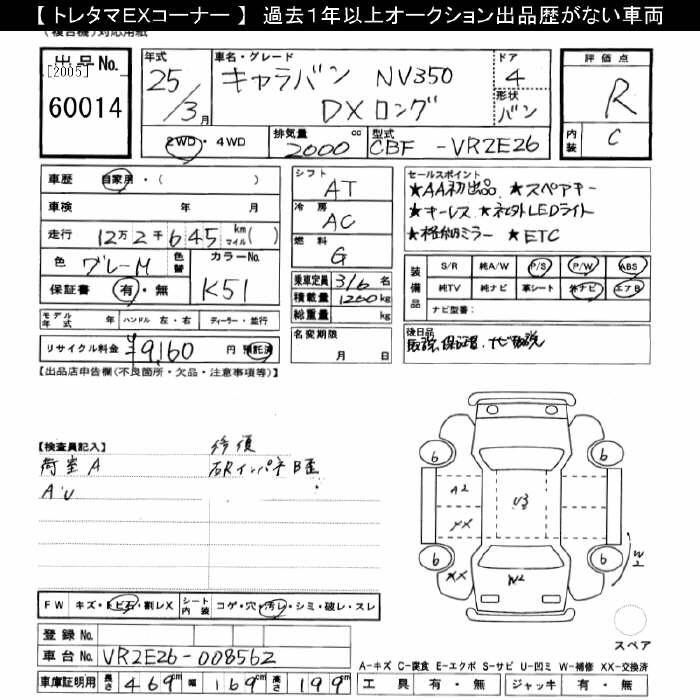 【 トレタマEXコーナー 】 過去1年以上オークション出品歴がない車両
(複合機)対応用紙
出品 No.
[2005]
60014
年式
25/3月
車名・グレード
キャラバン NV350
DX ロング
ドア
4
形状
バン
評価点
R
内装
C
2WD・4WD
排気量
2000 cc
型式
CBF -VR2E26
車歴 自家用・( )
車検 年 月
走行 12万2千645 km マイル( )
色 グレーM 色替
カラーNo.
K51
保証書 有・無
モデル年式 年 ハンドル 左・右 ディーラー・並行
リサイクル料金 ¥9,160 円 預託済
シフト
AT
冷房
AC
燃料
G
乗車定員 3/6 名
積載量 1200 kg
総重量 kg
名変期限
月 日
セールスポイント
★AA初出品 ★スペアキー
★キーレス ★ネクストLEDライト
★格納ミラー ★ETC
装備品
S/R 純A/W P/S P/W ABS
純TV 純ナビ 革シート ナビ エアB
ナビ型番:
後日品
取説、保証書、ナビ取説
【出品店申告欄(不良箇所・欠品・注意事項等)】
【検査員記入】
荷室A
AU
修復
右Rインパネ B歪
6
6
6
6
A2
XX
U3
XX
W2
W2
FW キズ・トビ石・割レX
シート内装 コゲ・穴・汚レ・シミ・破レ・スレ
登録 No.
車台 No. VR2E26-008562
車庫証明用 長さ 469 cm 幅 169 cm 高さ 199 cm
スペア
A-キズ C-腐食 E-エクボ S-サビ U-凹ミ W-補修 XX-交換済
工具 有・無 ジャッキ 有・無